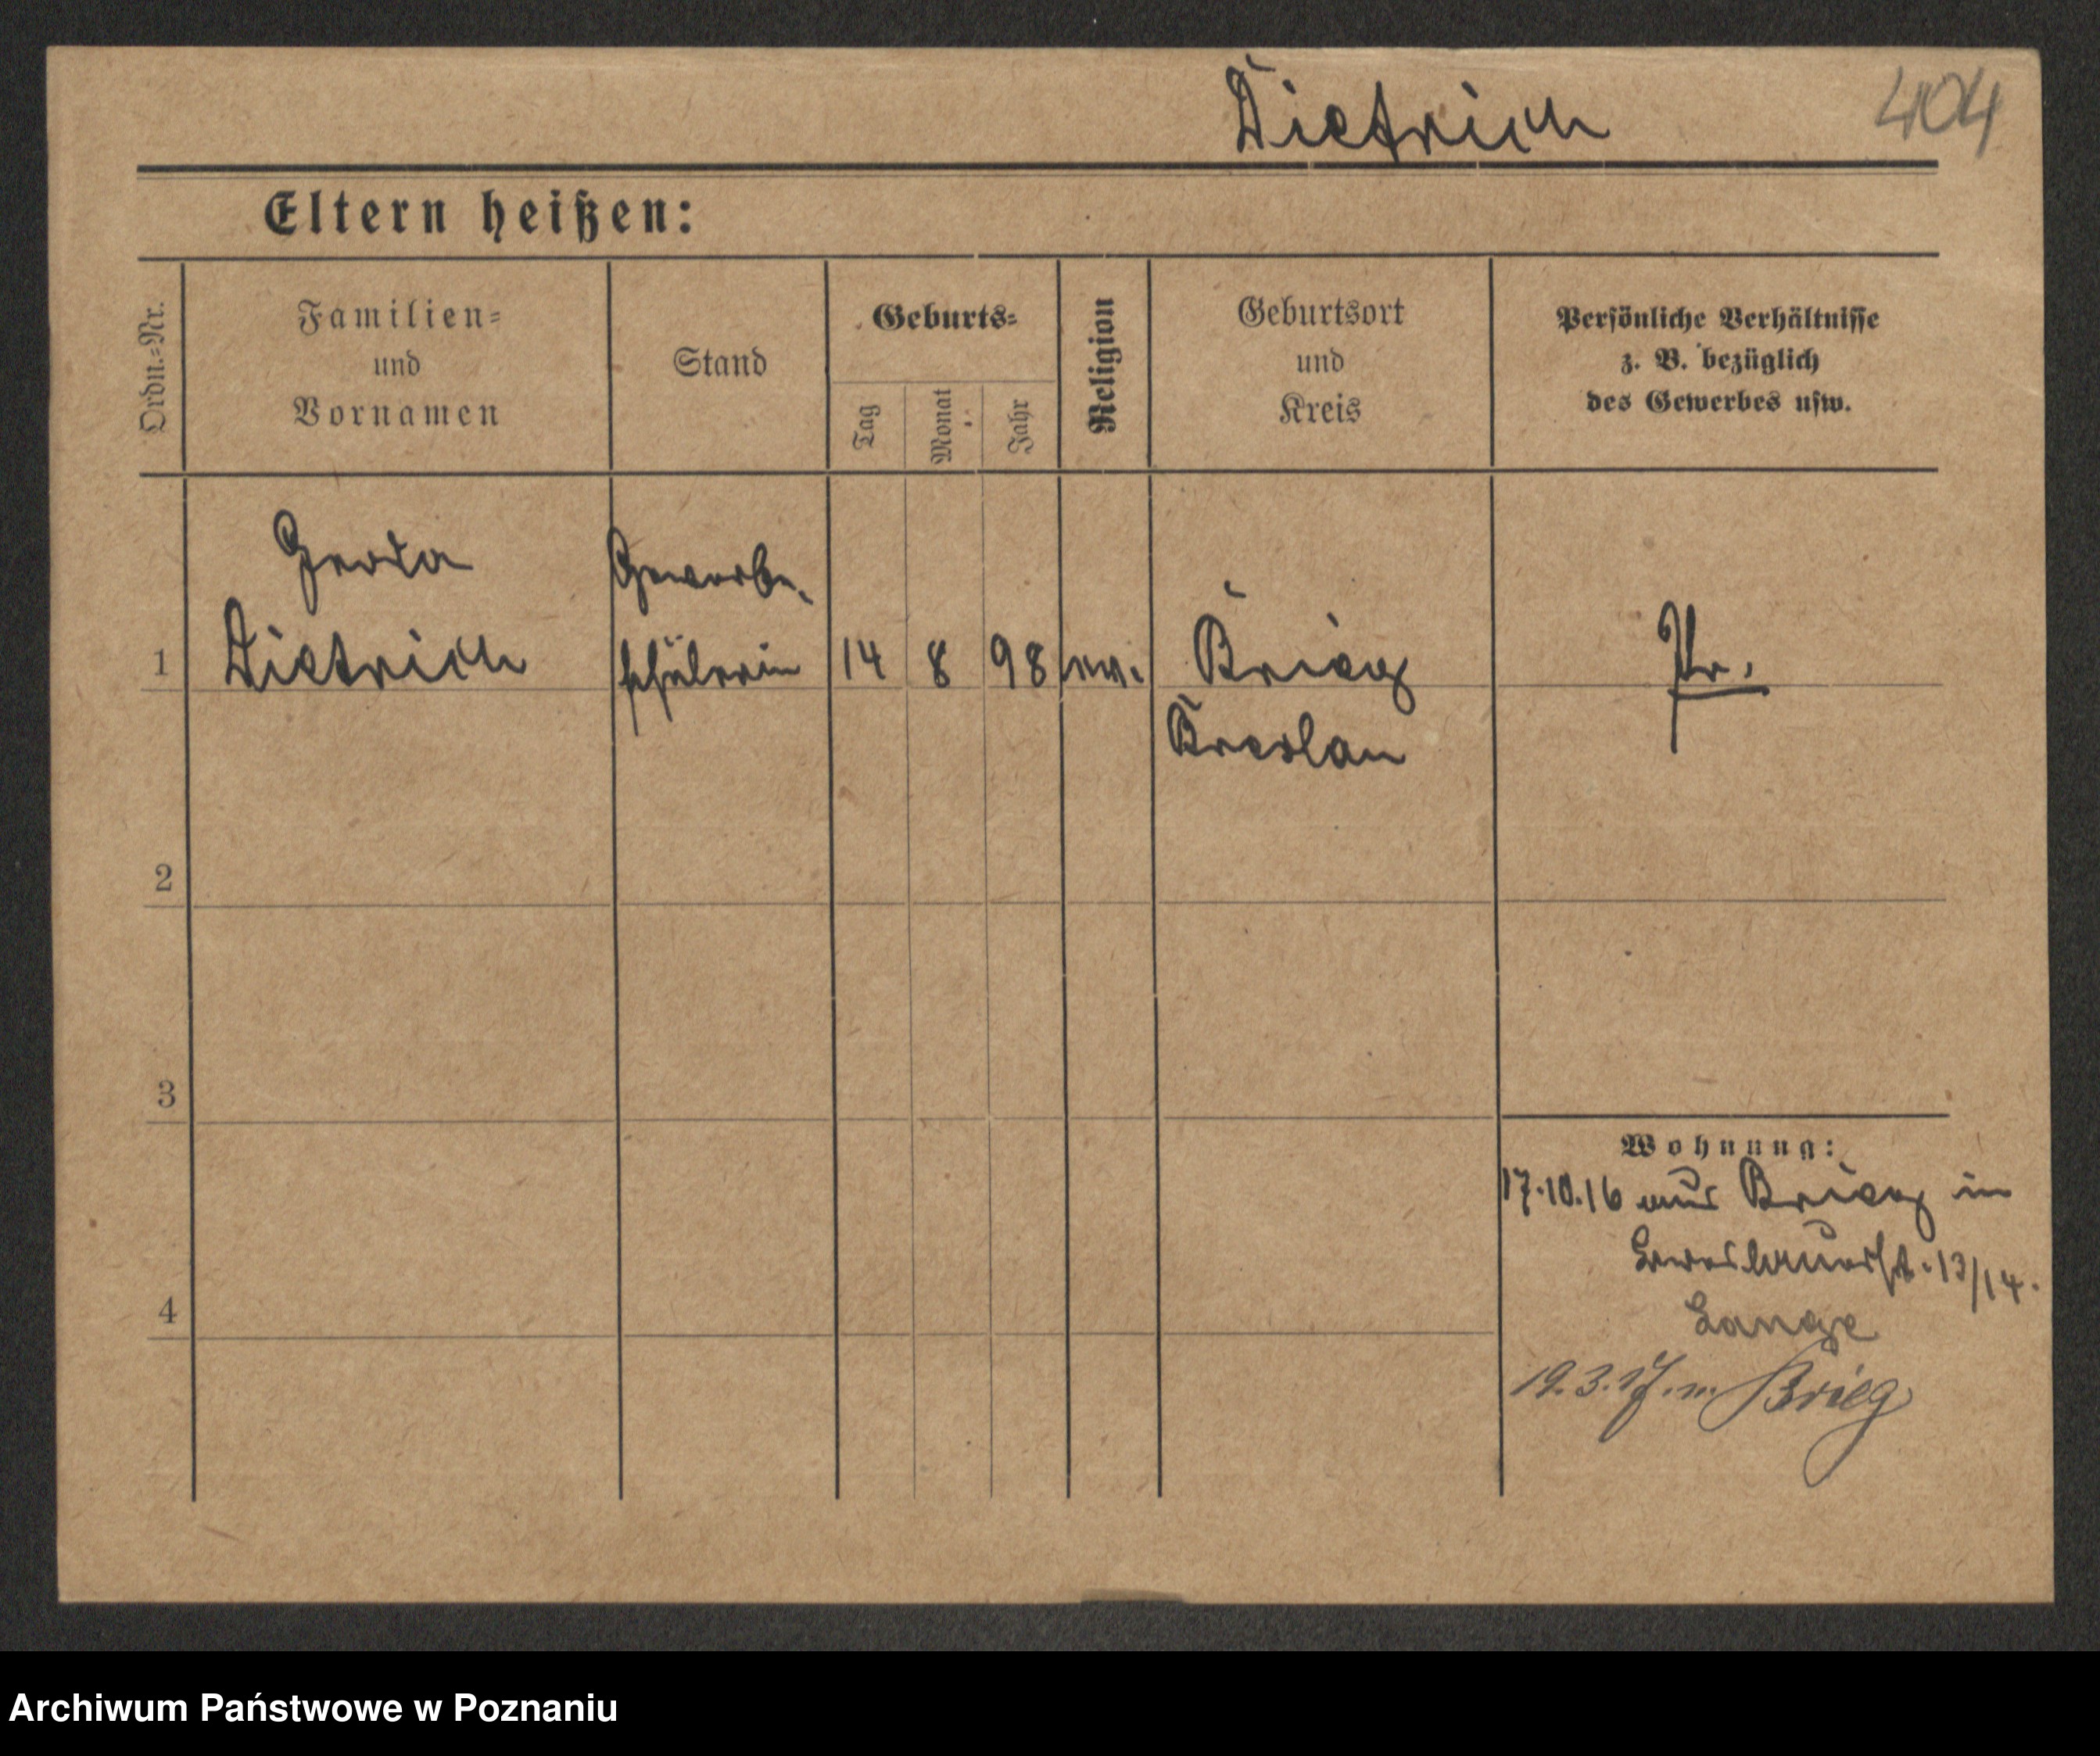 Dietrich
404
Eltern heißen:
Ordn.=Nr.
Familien=
und
Vornamen
Stand
Geburts=
Tag
Monat
Jahr
Religion
Geburtsort
und
Kreis
Persönliche Verhältnisse
z. B. bezüglich
des Gewerbes usw.
1
Gerda
Dietrich
Gewerbe-
schülerin
14
8
98
ev.
Brieg
Breslau
Pr.
2
3
4
Wohnung:
17.10.16 aus Brieg in
13/14.
Lange
19.3.17. n. Brieg
Archiwum Państwowe w Poznaniu